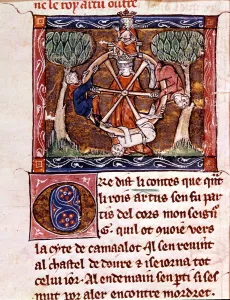 ne le roy artu outre
ORe dist li contes que qñt
li rois artus sen fu par
tis del cors mon seigñ
G. quil ot enuoie vers
la cyte de camaalot. Il sen reuint
al chastel de doure & seiorna tot
celui ior. Al endemain sen pti si ses
mut por aler encontre mordret